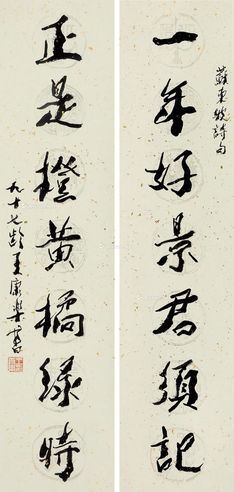 蘇東坡詩句
一年好景君須記
正是橙黃橘綠時
九十七齡王康樂書